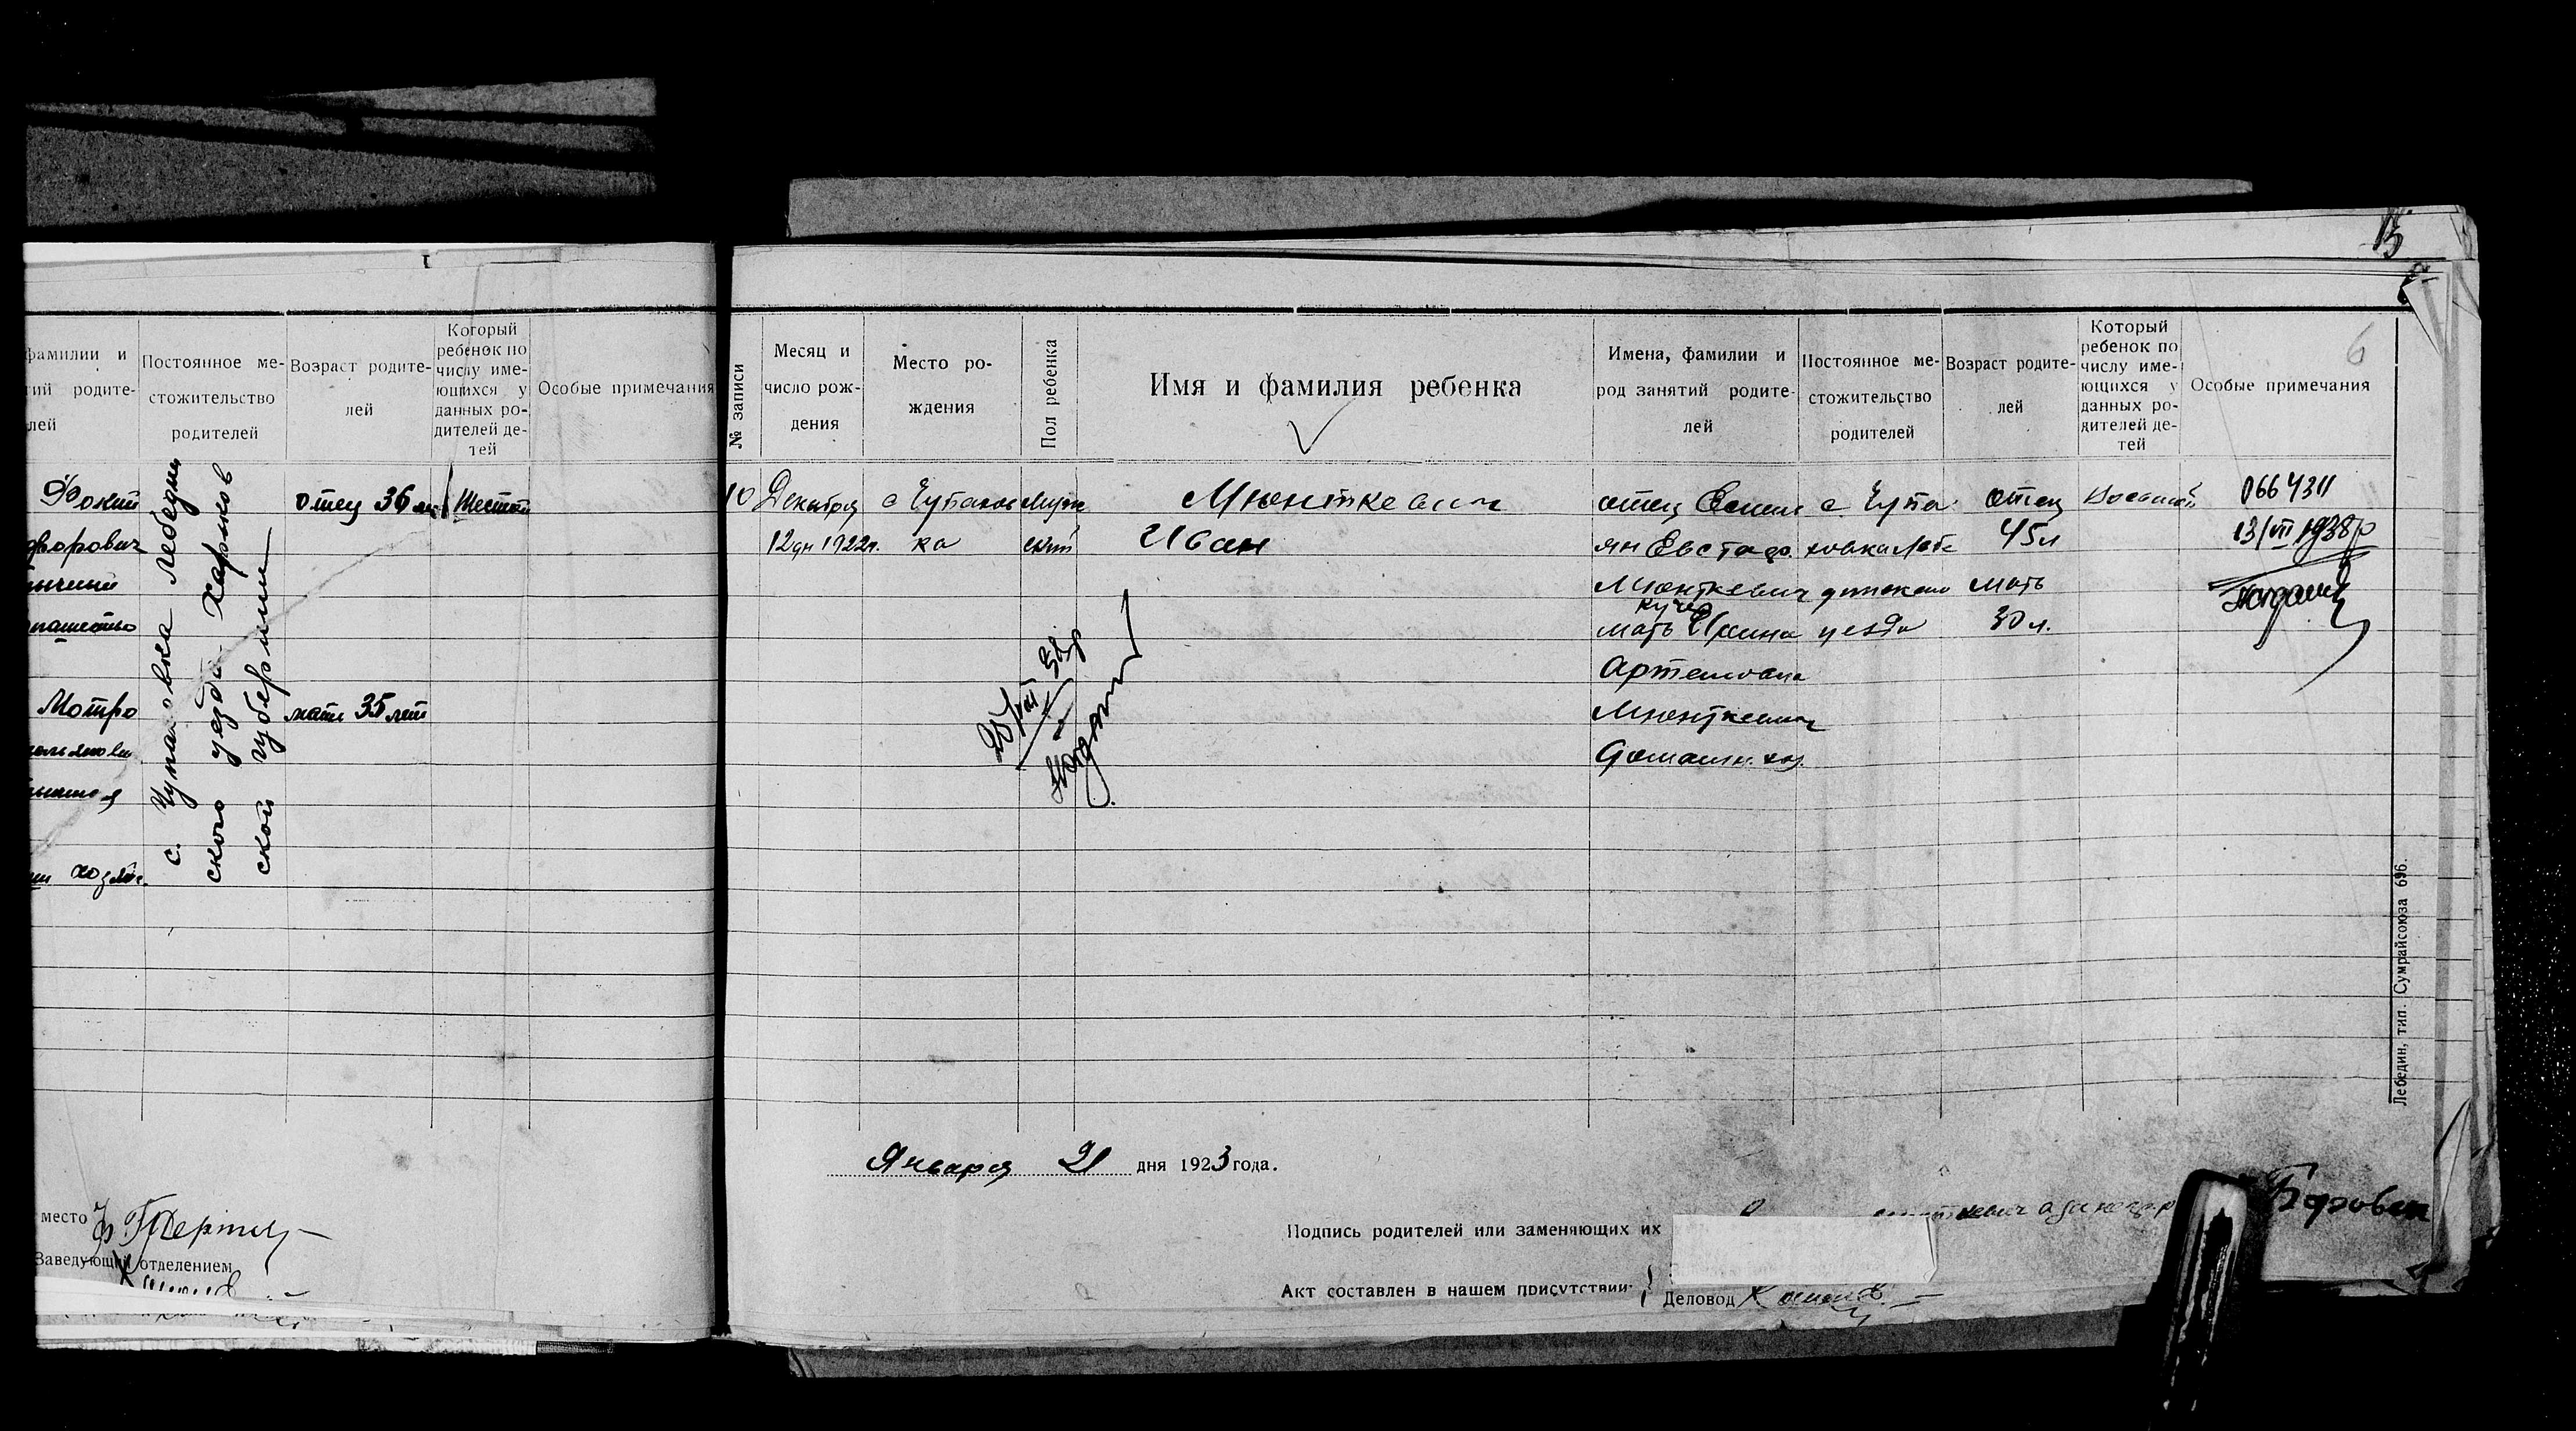 фамилии и
тий родите-
лей
Постоянное ме-
стожительство
родителей
Возраст родите-
лей
Который
ребенок по
числу име-
ющихся у
данных ро-
дителей де-
тей
Особые примечания
Фокий
отец 36 лет
Шестой
форович
с. Чупаховка Лебедин
ского уезда Харьков
ской губернии
Мотро
мать 35 лет
хозяйс.
место
Заведующий отделением
№ записи
Месяц и
число рож-
дения
Место ро-
ждения
Пол ребенка
Имя и фамилия ребенка
Имена, фамилии и
род занятий родите-
лей
Постоянное ме-
стожительство
родителей
Возраст родите-
лей
Который
ребенок по
числу име-
ющихся у
данных ро-
дителей де-
тей
Особые примечания
6
10
Декабря
12 дн 1922г.
с Чупахов
ка
Муж
ский
Мионткевич
Иван
отец Емель
ян Евстаф.
Мионткевич
кучер
мать Ирина
Артемовна
Мионткевич
домашн. хоз.
с. Чупа
ховка Лебе
динского
уезда
отец
45 л
мать
30 л.
Восьмой
0664311
13/VII 1938 р
Января 21 дня 1923 года.
Подпись родителей или заменяющих их
Акт составлен в нашем присутствии:
Деловод
Лебедин, тип. Сумрайсоюза 696.